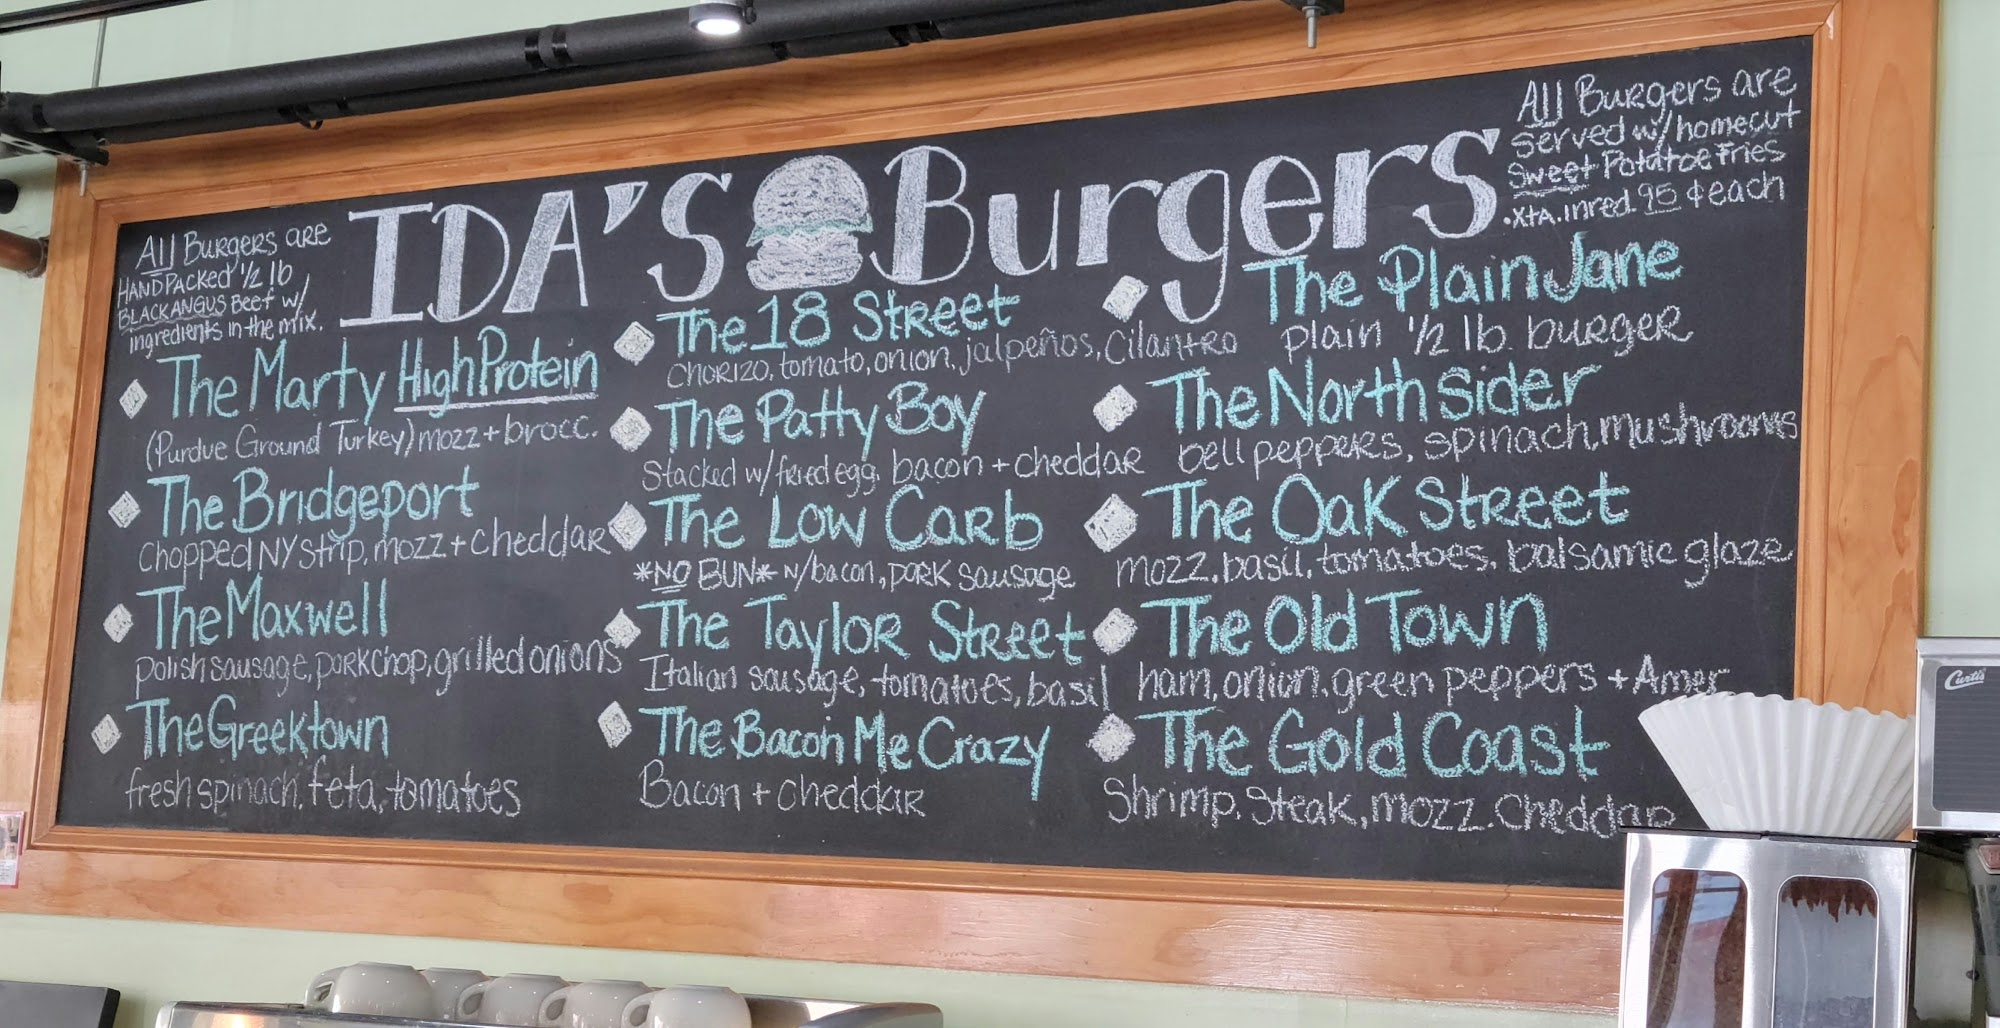 All Burgers are
Hand Packed 1/2 lb
Black Angus Beef w/
ingredients in the mix.
IDA'S Burgers
All Burgers are
served w/ homecut
Sweet Potatoe Fries
.xtA.inred. 95 ¢ each
The Marty High Protein
(Purdue Ground Turkey) mozz + brocc.
The Bridgeport
Chopped NY strip, mozz + cheddar
The Maxwell
polish sausage, porkchop, grilled onions
The Greektown
fresh spinach, feta, tomatoes
The 18 Street
chorizo, tomato, onion, jalpeños, cilantro
The Patty Boy
Stacked w/ fried egg, bacon + cheddar
The Low Carb
*NO BUN* w/ bacon, pork sausage
The Taylor Street
Italian sausage, tomatoes, basil
The Bacon Me Crazy
Bacon + cheddar
The Plain Jane
plain 1/2 lb. burger
The North Sider
bell peppers, spinach, mushrooms
The Oak Street
mozz. basil, tomatoes, balsamic glaze
The Old Town
ham, onion, green peppers + Amer
The Gold Coast
Shrimp, Steak, mozz. Cheddar
Curtis